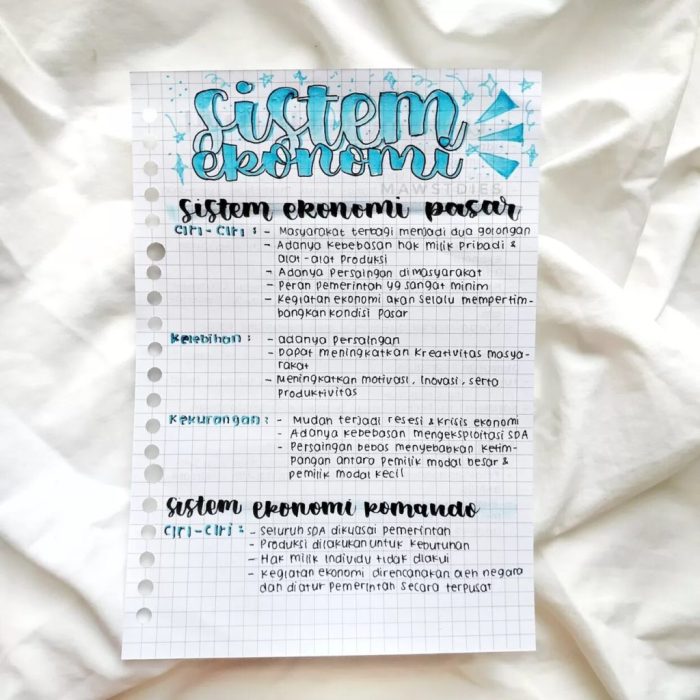 sistem
ekonomi
MAWSTDIES
sistem ekonomi pasar
Ciri-Ciri : - Masyarakat terbagi menjadi dua golongan
- Adanya kebebasan hak milik pribadi &
alat-alat produksi
- Adanya Persaingan dimasyarakat
- Peran pemerintah yg sangat minim
- Kegiatan ekonomi akan selalu mempertim-
bangkan kondisi pasar
Kelebihan : - adanya persaingan
- Dapat meningkatkan kreativitas masya-
rakat
- Meningkatkan motivasi, inovasi, serta
produktivitas
Kekurangan : - Mudah terjadi resesi & krisis ekonomi
- Adanya kebebasan mengeksploitasi SDA
- Persaingan bebas menyebabkan ketim-
pangan antara pemilik modal besar &
pemilik modal kecil
sistem ekonomi komando
Ciri-Ciri : - Seluruh SDA dikuasai pemerintah
- Produksi dilakukan untuk kebutuhan
- Hak milik individu tidak diakui
- Kegiatan ekonomi direncanakan oleh negara
dan diatur pemerintah secara terpusat